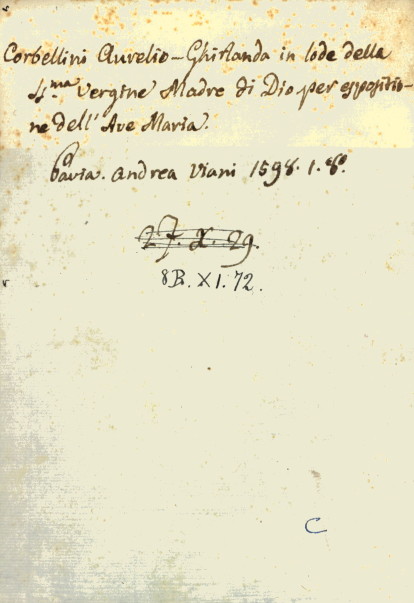 Corbellini Aurelio - Ghirlanda in lode della
S.ma Vergine Madre di Dio per espositio-
ne dell' Ave Maria.
Pavia. Andrea Viani 1598. 1. 8.o
27. X. 29.
8B. XI. 72.
C